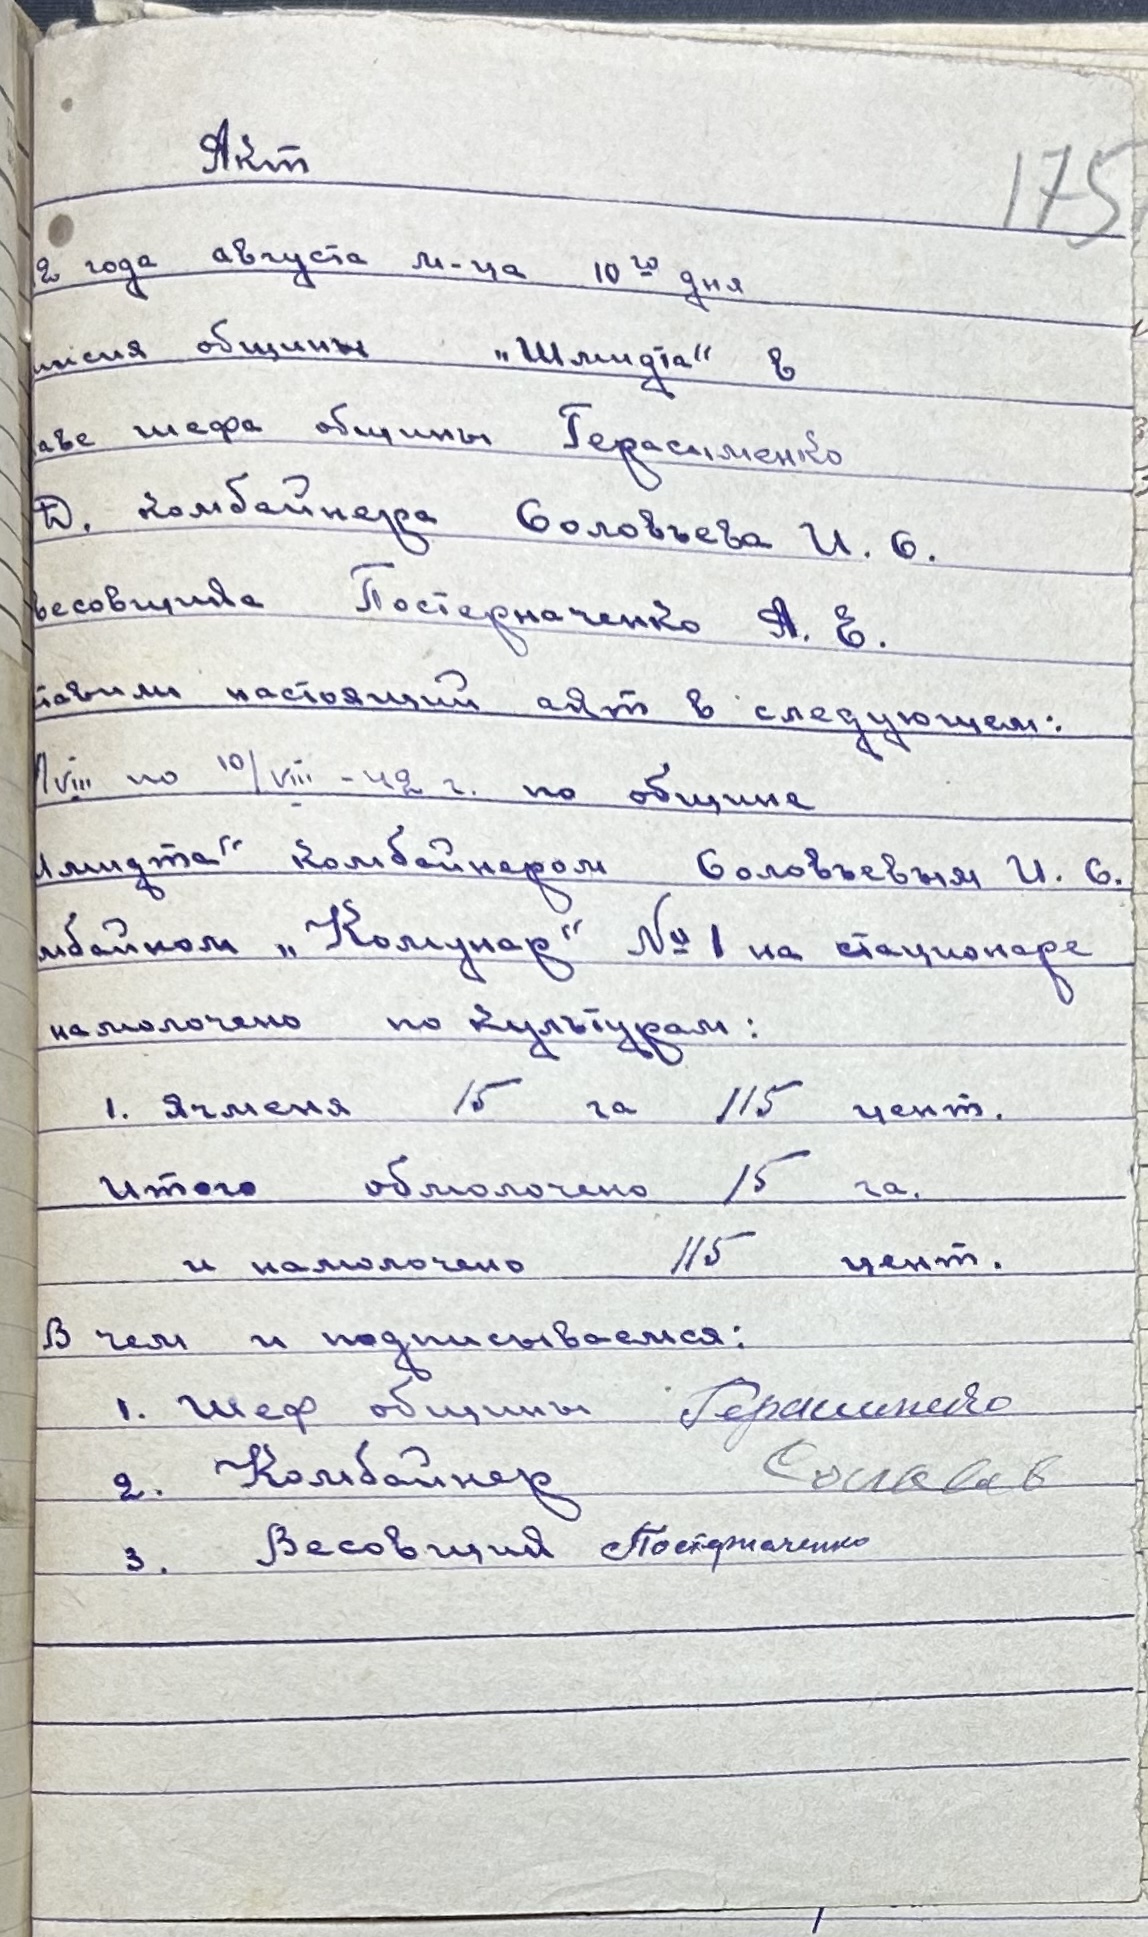 175
Акт
2 года августа м-ца 10го дня
миссия общины „Шмидта“ в
таве шефа общины Герасименко
Ф. комбайнера Соловьева И. С.
весовщика Постерначенко А. Е.
тавили настоящий акт в следующем:
1/VIII по 10/VIII - 42 г. по общине
Шмидта“ комбайнером Соловьевым И. С.
мбайном „Комунар“ № 1 на стационаре
намолочено по культурам:
1. Ячменя 15 га 115 цент.
Итого обмолочено 15 га.
и намолочено 115 цент.
В чем и подписываемся:
1. Шеф общины Герасименко
2. Комбайнер
3. Весовщик Постерначенко